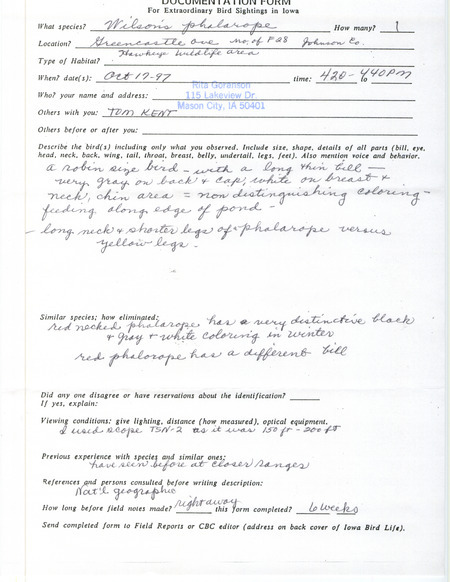 DOCUMENTATION FORM
For Extraordinary Bird Sightings in Iowa
What species? Wilson's phalarope How many? 1
Location? Greencastle Ave no. of F28 Johnson Co.
Hawkeye Wildlife area
Type of Habitat?
When? date(s): Oct 17-97 time: 420 - to 440PM
Rita Goranson
Who? your name and address: 115 Lakeview Dr.
Mason City, IA 50401
Others with you: TOM KENT
Others before or after you:
Describe the bird(s) including only what you observed. Include size, shape, details of all parts (bill, eye,
head, neck, back, wing, tail, throat, breast, belly, undertail, legs, feet). Also mention voice and behavior.
a robin size bird - with a long thin bill -
very gray on back & cap, white on breast &
neck, chin area = non distinguishing coloring -
feeding along edge of pond -
- long neck & shorter legs of phalarope versus
yellow legs -
Similar species; how eliminated:
red necked phalarope has a very distinctive black
& gray & white coloring in winter
red phalorope has a different bill
Did any one disagree or have reservations about the identification?
If yes, explain:
Viewing conditions: give lighting, distance (how measured), optical equipment.
I used scope TSN-2 as it was 150 ft - 200 ft
Previous experience with species and similar ones:
have seen before at closer ranges
References and persons consulted before writing description:
Nat'l geographic
How long before field notes made? right away this form completed? 6 weeks
Send completed form to Field Reports or CBC editor (address on back cover of Iowa Bird Life).